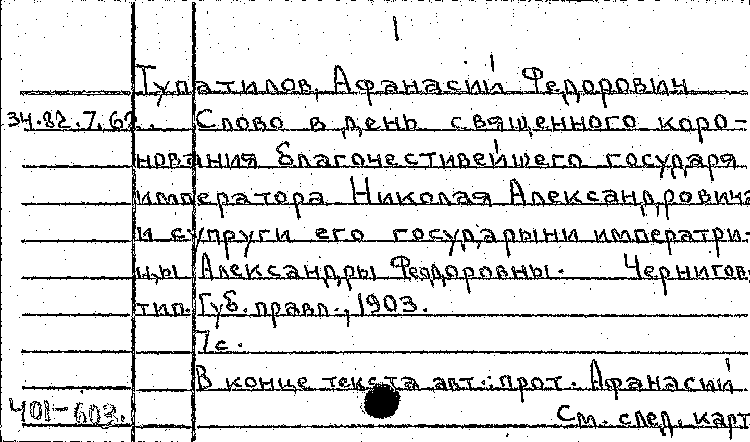 1
Тупатилов, Афанасий Федорович
34.82.7.62. Слово в день священного коро-
нования благочестивейшего государя
императора Николая Александровича
и супруги его государыни императри-
цы Александры Феодоровны. Чернигов,
тип. Губ. правл., 1903.
7с.
В конце текста авт.: прот. Афанасий
401-603.
См. след. карт